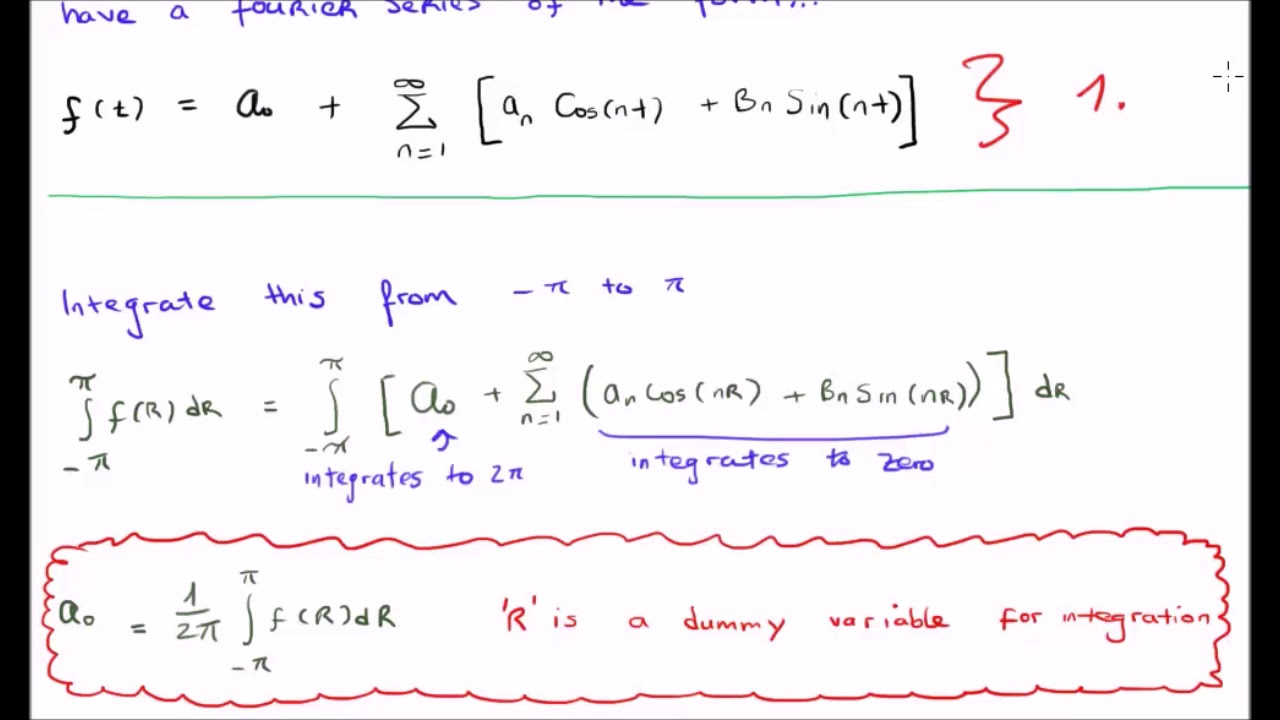 have a fourier series of the form...
f(t) = a₀ + ∞ Σ n=1 [aₙ Cos(nt) + Bₙ Sin(nt)] } 1.
Integrate this from -π to π
π ∫ -π f(R) dR = π ∫ -π [a₀ + ∞ Σ n=1 (aₙ Cos(nR) + Bₙ Sin(nR))] dR
integrates to 2π integrates to zero
a₀ = 1/2π π ∫ -π f(R)dR 'R' is a dummy variable for integration